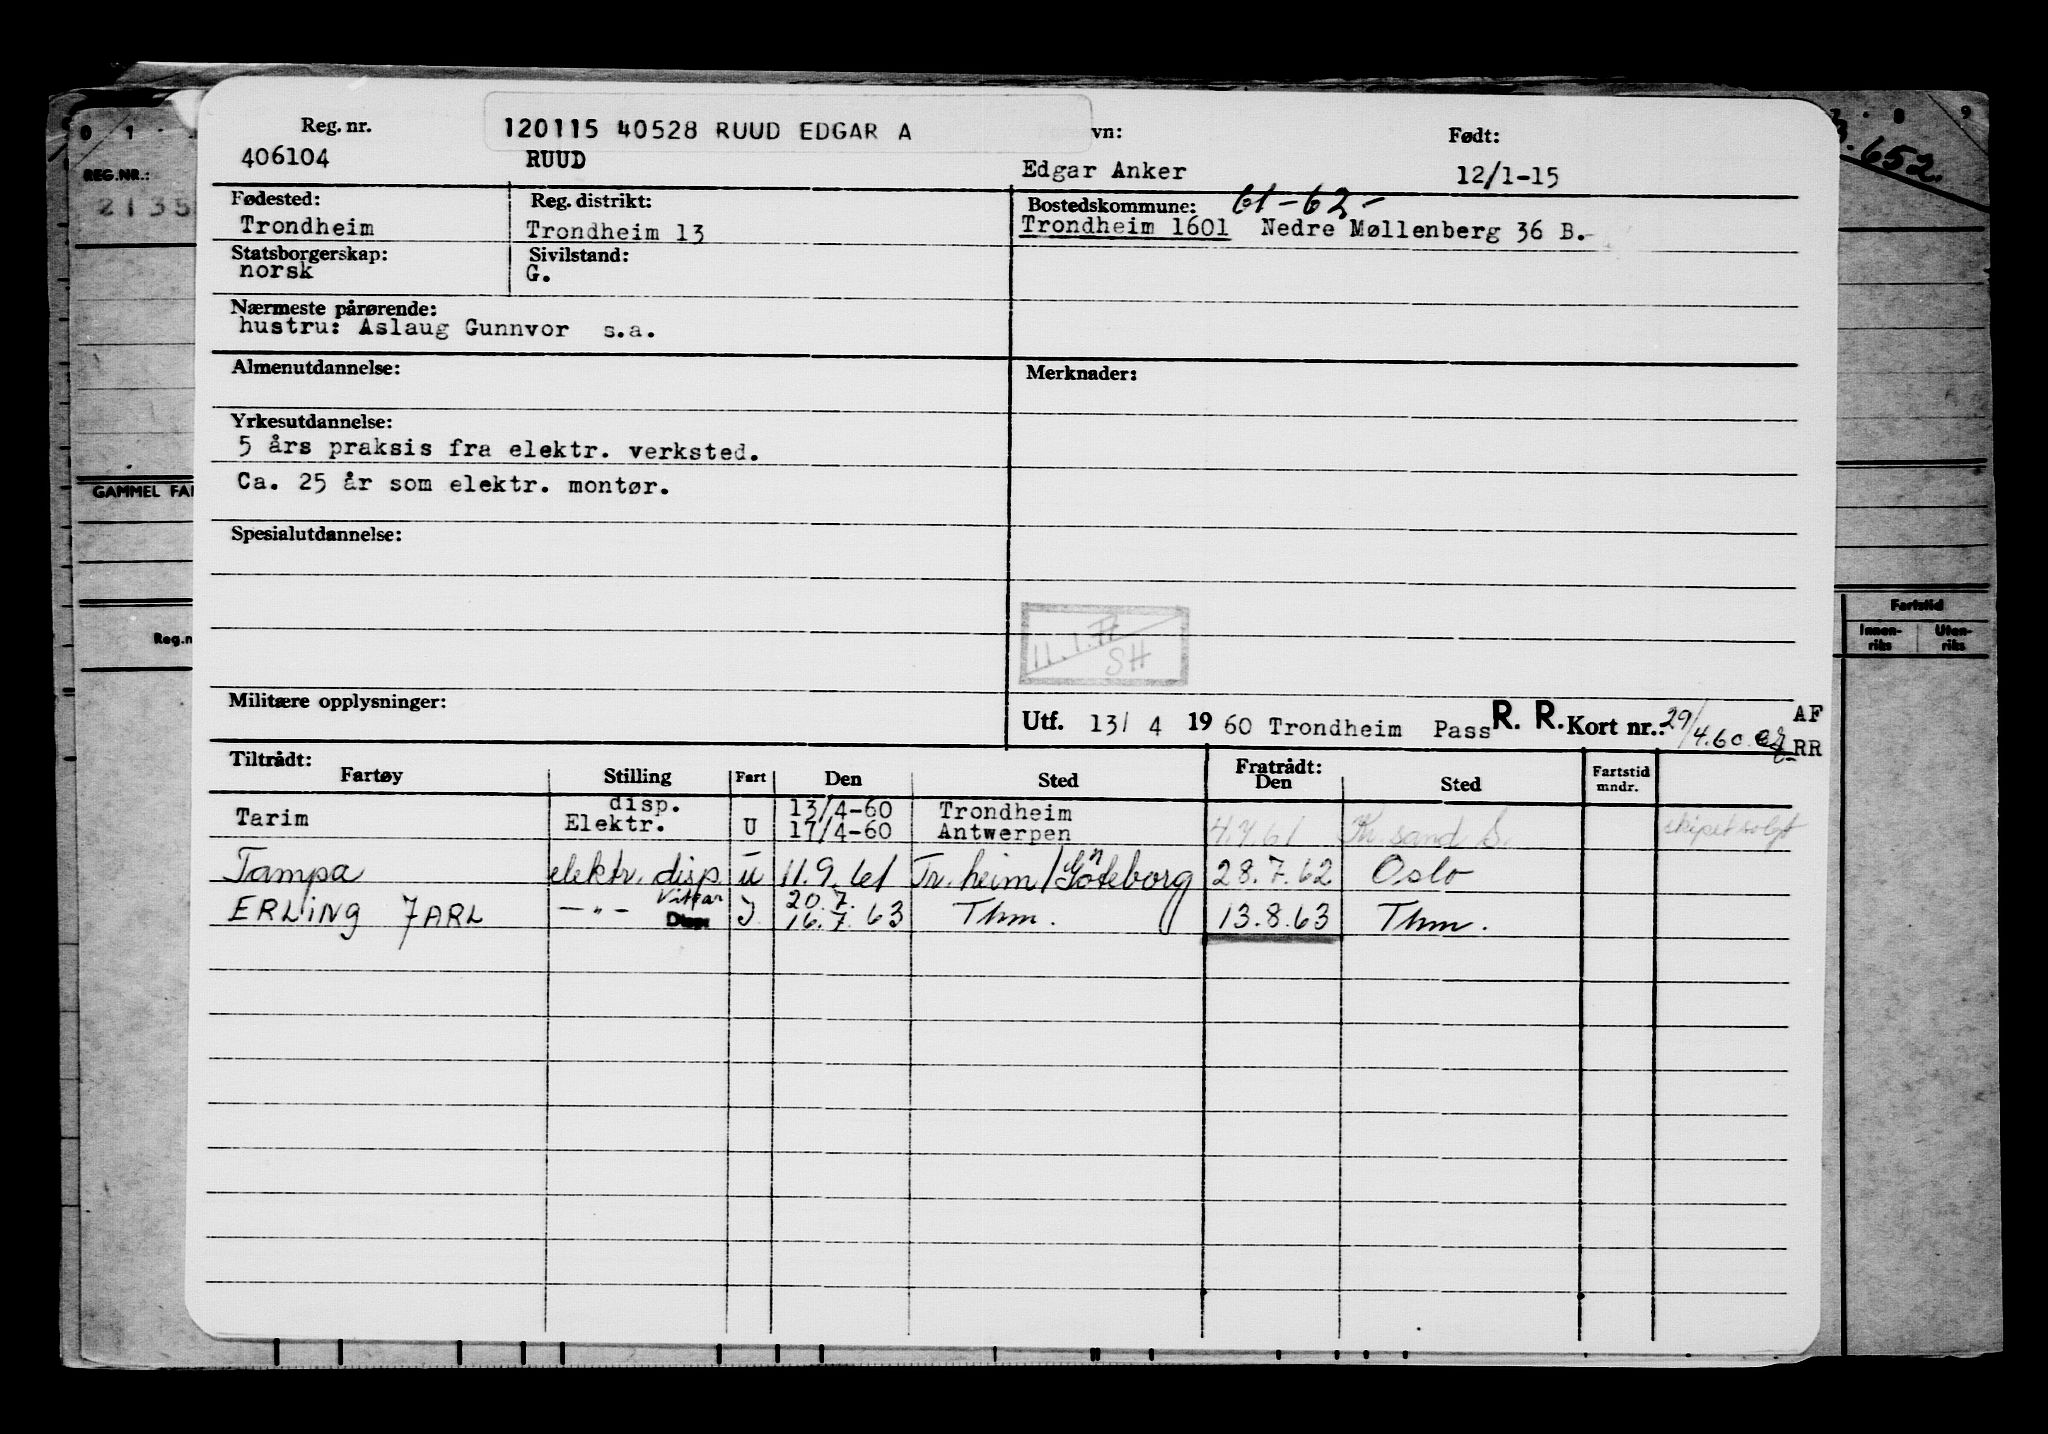 0 1 8 9
REG.NR.:
2135
652.
GAMMEL FA
Reg.n
Fartstid
Innen-riks Uten-riks
Reg. nr. 120115 40528 RUUD EDGAR A vn: Født:
406104 RUUD Edgar Anker 12/1-15
Fødested: Reg. distrikt: Bostedskommune: 61-62-
Trondheim Trondheim 13 Trondheim 1601 Nedre Møllenberg 36 B.-
Statsborgerskap: Sivilstand:
norsk G.
Nærmeste pårørende:
hustru: Aslaug Gunnvor s.a.
Almenutdannelse: Merknader:
Yrkesutdannelse:
5 års praksis fra elektr. verksted.
Ca. 25 år som elektr. montør.
Spesialutdannelse:
11.1.77
SH
Militære opplysninger:
Utf. 13/ 4 19 60 Trondheim Pass R. R. Kort nr.: 29/4.60 AF
RR
Tiltrådt: Fratrådt:
Fartøy Stilling Fart Den Sted Den Sted Fartstid mndr.
disp. 13/4-60 Trondheim
Tarim Elektr. U 17/4-60 Antwerpen 61 Kr. sand S. skipet solgt
Tampa elektr. disp. u 11.9.61 Tr. heim/Göteborg 28.7.62 Oslo
Vikar 20.7.
ERLING JARL -"- Disp J. 16.7.63 Thm. 13.8.63 Thm.